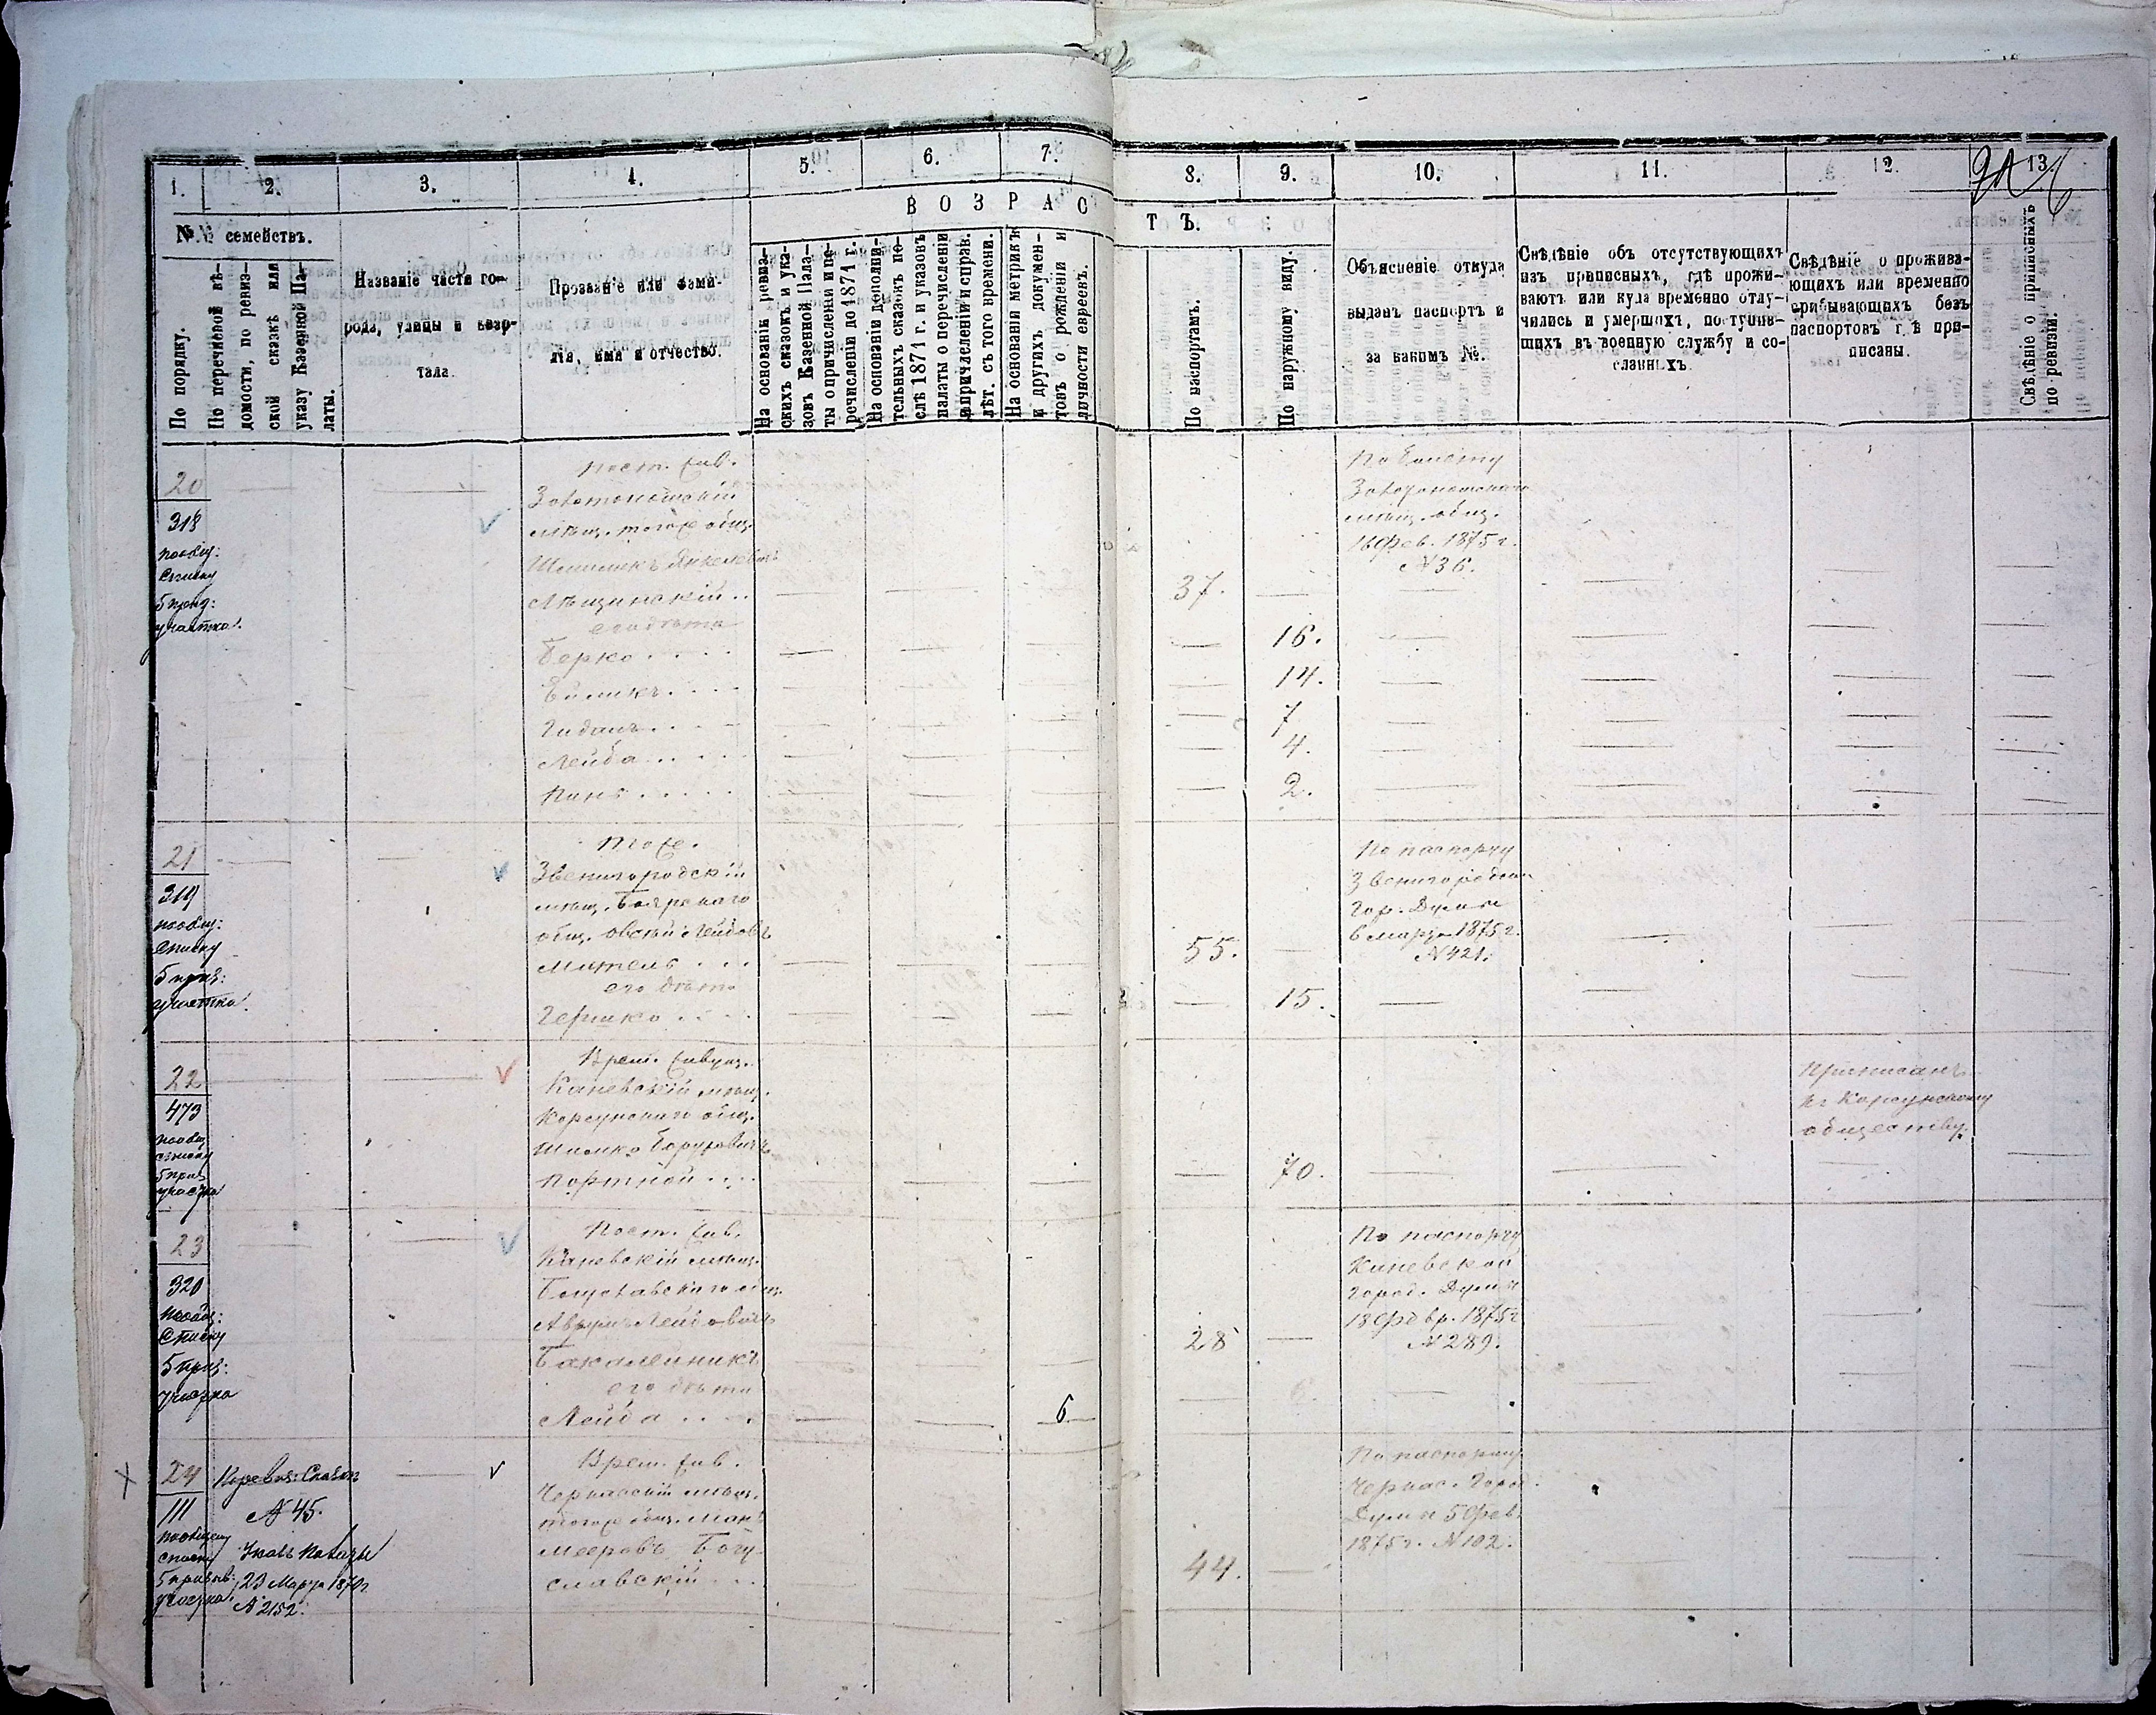 1. 2. 3. 4. 5. 6. 7. 8. 9. 10. 11. 12. 13.
ВОЗРАСТЪ.
№№ семействъ.
По порядку.
По перечневой вѣ-
домости, по ревиз-
ской сказкѣ или
указу Казенной Па-
латы.
Названіе части го-
рода, улицы и квар-
тала.
Прозваніе или фами-
лія, имя и отчество.
На основаніи ревиз-
скихъ сказокъ и ука-
зовъ Казенной Пала-
ты о причисленіи и пе-
речисленіи до 1871 г.
На основаніи дополни-
тельныхъ сказокъ по-
слѣ 1871 г. и указовъ
палаты о перечисленіи
и причисленіи и справ.
лѣт. съ того времени.
На основаніи метрикъ
и другихъ докумен-
товъ о рожденіи и
личности евреевъ.
По паспортамъ.
По наружному виду.
Объясненіе откуда
выданъ паспортъ и
за какимъ №.
Свѣдѣніе объ отсутствующихъ
изъ приписныхъ, гдѣ прожи-
ваютъ или куда временно отлу-
чились и умершихъ, поступив-
шихъ въ военную службу и со-
сланныхъ.
Свѣдѣніе о прожива-
ющихъ или временно
прибывающихъ безъ
паспортовъ гдѣ при-
писаны.
Свѣдѣніе о приписныхъ
по ревизіи.
20
318
по общ:
списку
5 приз:
участка.
Пост. жив.
Золотоношскій
мѣщ. того же общ.
Янкелевъ
Лѣщинскій . .
его дѣти
Берко . . . .
Гиданъ . . . .
Лейба . . . .
37.
16.
14.
7
4.
2.
По билету
Золотоношскаго
мѣщ. общ.
Фев. 1875 г.
№ 36.
21
319
по общ:
списку
5 приз:
участка.
Тоже.
Звенигородскій
мѣщ.
общ. Овсей Лейбовъ
его дѣти
Гершко . . . .
55.
15.
По паспорту
Звенигородской
Гор. Думы
6 марта 1875 г.
№ 421.
22
473
по общ
списку
5 приз
участка
Врем. живущ.
Каневскій мѣщ.
Корсунскаго общ.
Шимко Боруховичъ
Портной . . .
70.
Приписанъ
къ Корсунскому
обществу.
23
320
по общ:
списку
5 приз:
участка
Пост. жив.
Каневскій мѣщ.
Богуславскаго общ.
Аврумъ Лейбовичъ
Бакалейникъ
его дѣти
Лейба . . . .
6
28
По паспорту
Каневской
Город. Думы
18 Февр. 1875 г
№ 289.
24
111
по общему
списку
5 призыв:
участка.
По ревиз: Сказкѣ
№ 45.
Указъ Палаты
23 Марта 187
№ 2152.
Врем. жив.
Черкасскій мѣщ.
того же общ.
Мееровъ Богу-
славскій . . .
44.
По паспорту
Черкас. Город.
Думы 5 Фев.
1875 г. № 102.